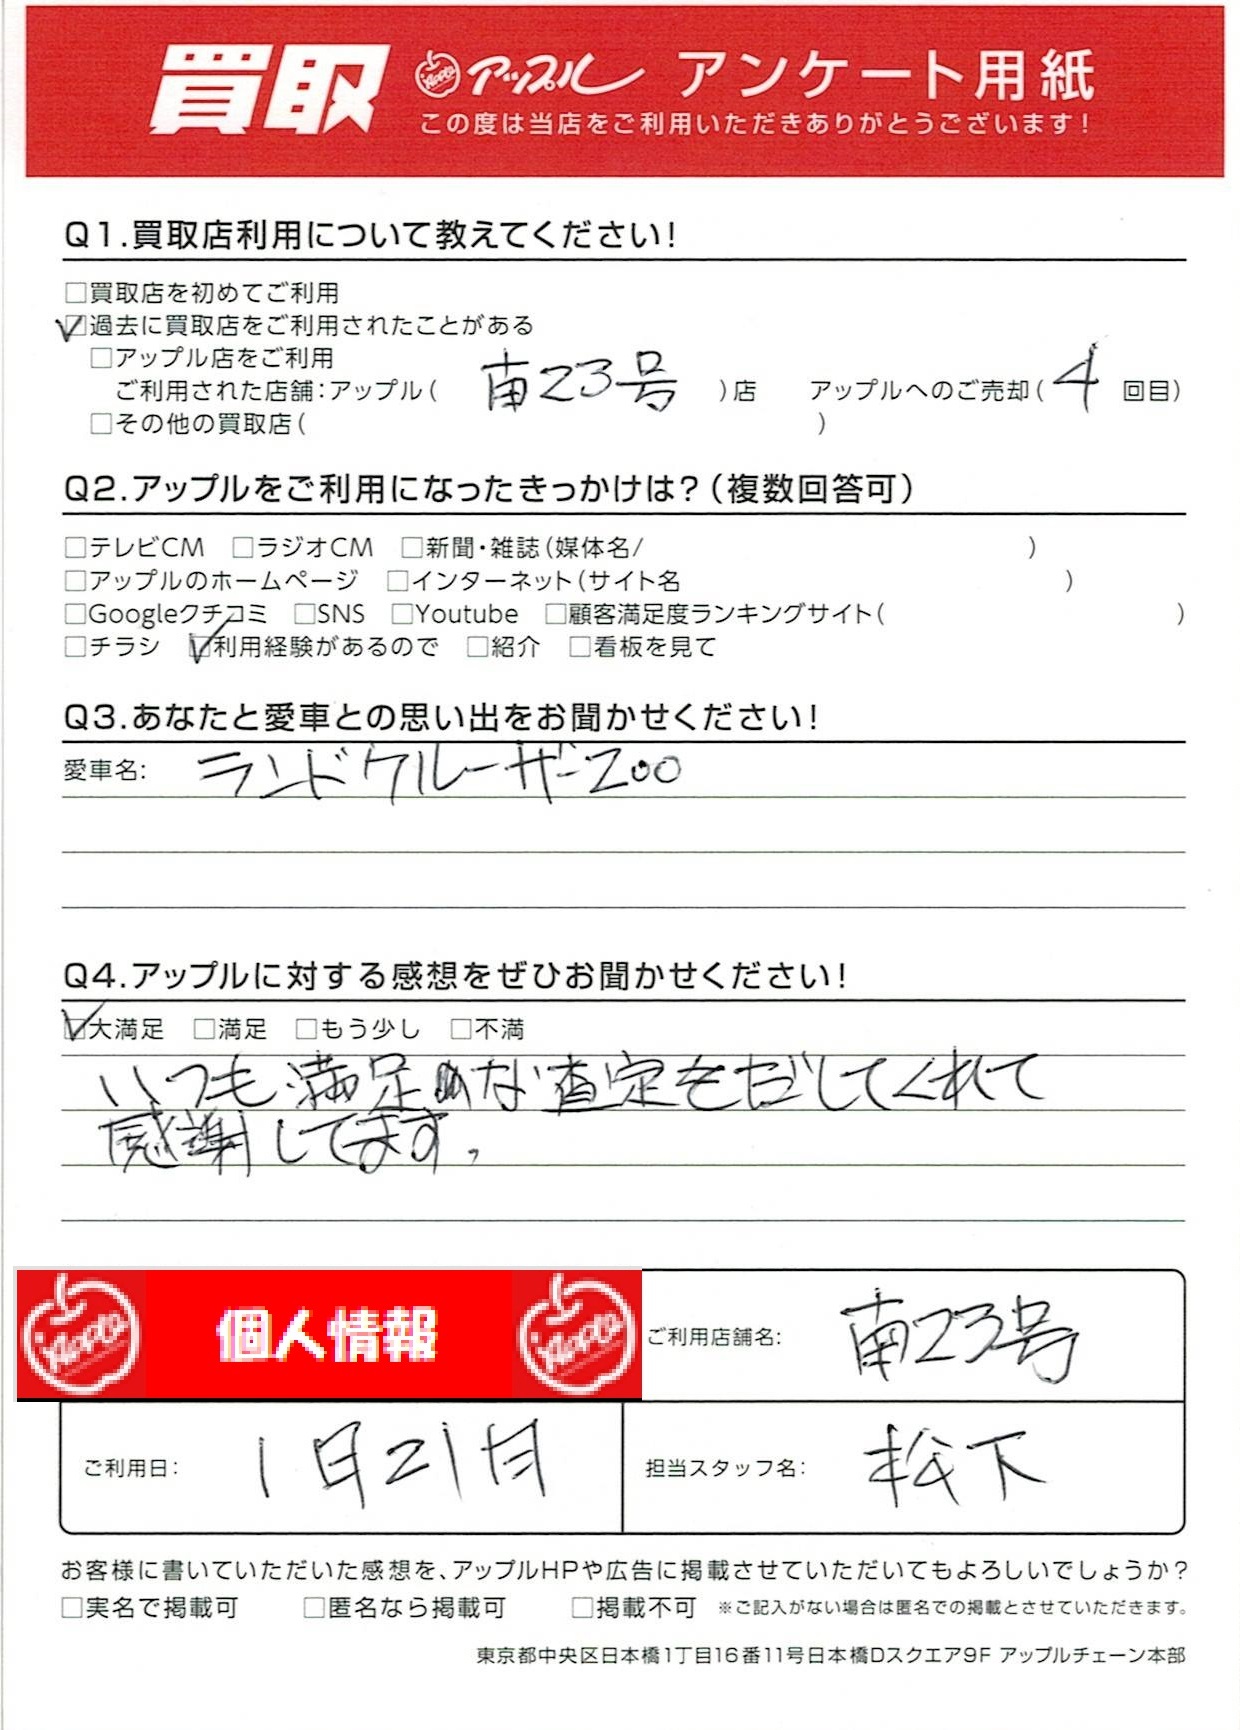 買取 Apple アップル アンケート用紙
この度は当店をご利用いただきありがとうございます!
Q1.買取店利用について教えてください!
□買取店を初めてご利用
☑過去に買取店をご利用されたことがある
□アップル店をご利用
ご利用された店舗:アップル( 南23号 )店 アップルへのご売却( 4 回目)
□その他の買取店( )
Q2.アップルをご利用になったきっかけは?(複数回答可)
□テレビCM □ラジオCM □新聞・雑誌(媒体名/ )
□アップルのホームページ □インターネット(サイト名 )
□Googleクチコミ □SNS □Youtube □顧客満足度ランキングサイト( )
□チラシ ☑利用経験があるので □紹介 □看板を見て
Q3.あなたと愛車との思い出をお聞かせください!
愛車名: ランドクルーザー200
Q4.アップルに対する感想をぜひお聞かせください!
☑大満足 □満足 □もう少し □不満
いつも満足な査定をだしてくれて
感謝してます。
Apple 個人情報 Apple ご利用店舗名: 南23号
ご利用日: 1月21日 担当スタッフ名: 松下
お客様に書いていただいた感想を、アップルHPや広告に掲載させていただいてもよろしいでしょうか?
□実名で掲載可 □匿名なら掲載可 □掲載不可 ※ご記入がない場合は匿名での掲載とさせていただきます。
東京都中央区日本橋1丁目16番11号日本橋Dスクエア9F アップルチェーン本部